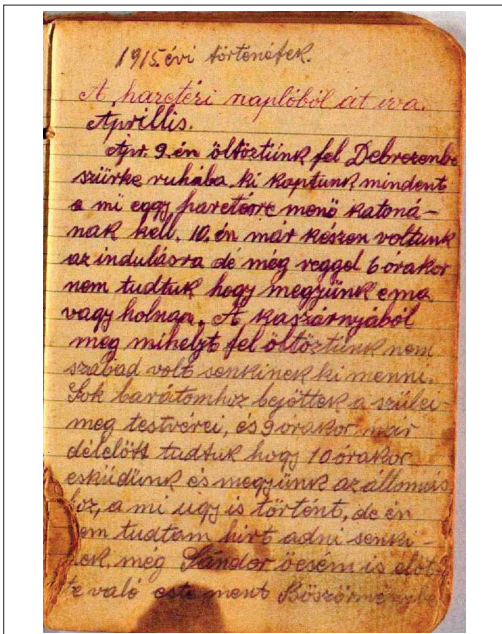 1915. évi történetek.
A harctéri naplóból át irva.
Aprillis.
Apr. 9. én öltöztünk fel Debrezenbe
szürke ruhába, ki kaptunk mindent
a mi egy harctérre menő katoná-
nak kell. 10. én már készen voltunk
az indulásra de még reggel 6 órakor
nem tudtuk hogy megyünk e ma
vagy holnap. A kaszárnyából
meg mihelyt fel öltöztünk nem
szabad volt senkinek ki menni.
Sok barátomhoz bejöttek a szülei
meg testvérei, és 9 órakor már
délelőtt tudtuk hogy 10 órakor
esküdünk és megyünk az állomás
hoz, a mi ugy is történt, de én
nem tudtam hirt adni senki-
nek, még Sándor öcsém is előt-
te való este ment Böszörménybe